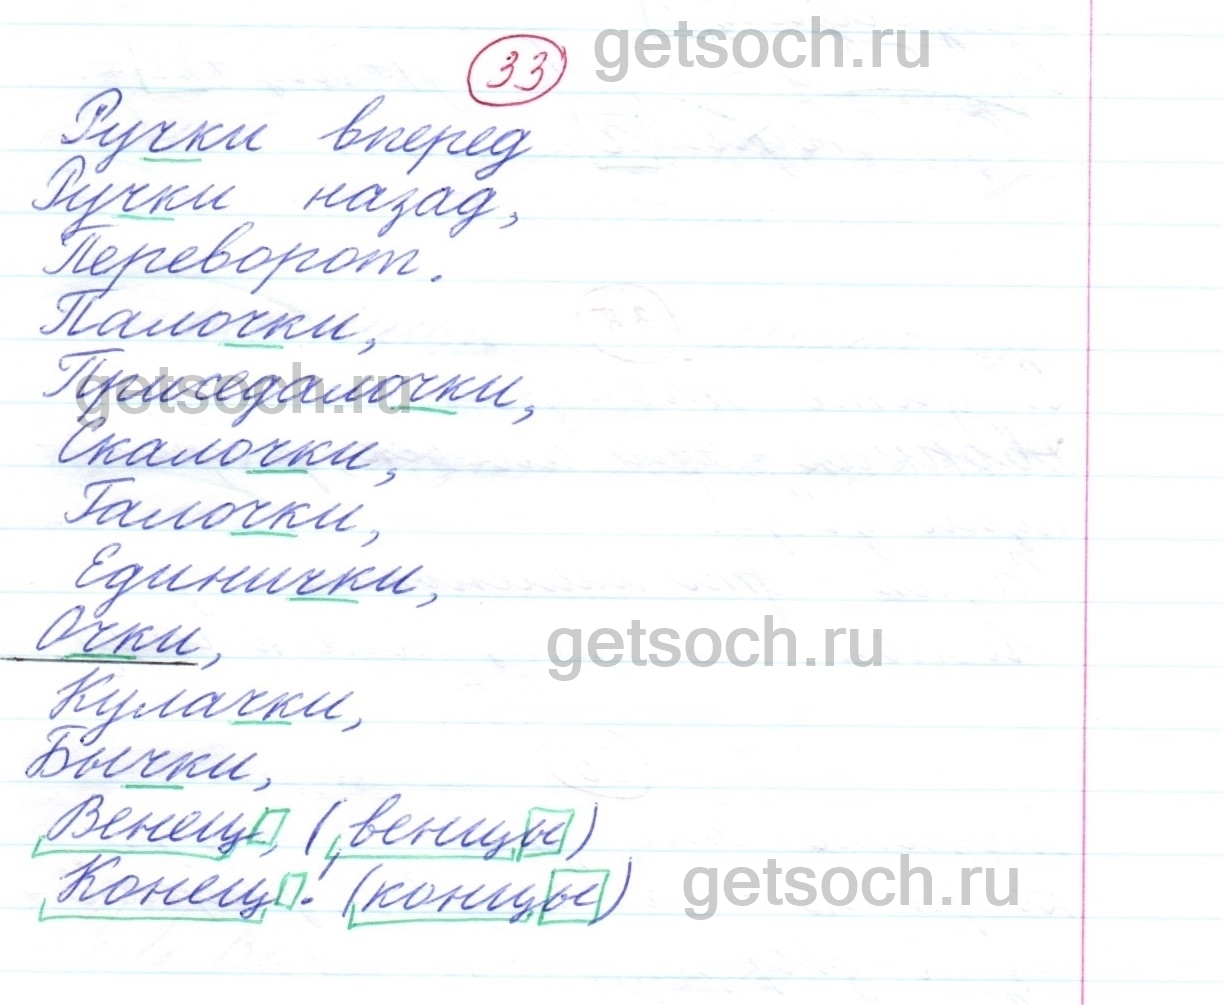 33
getsoch.ru
Ручки вперед
Ручки назад,
Переворот.
Палочки,
Приседалочки,
getsoch.ru
Скалочки,
Галочки,
Единички,
Очки,
getsoch.ru
Кулачки,
Бычки,
Венец, (венцы)
Конец. (концы)
getsoch.ru